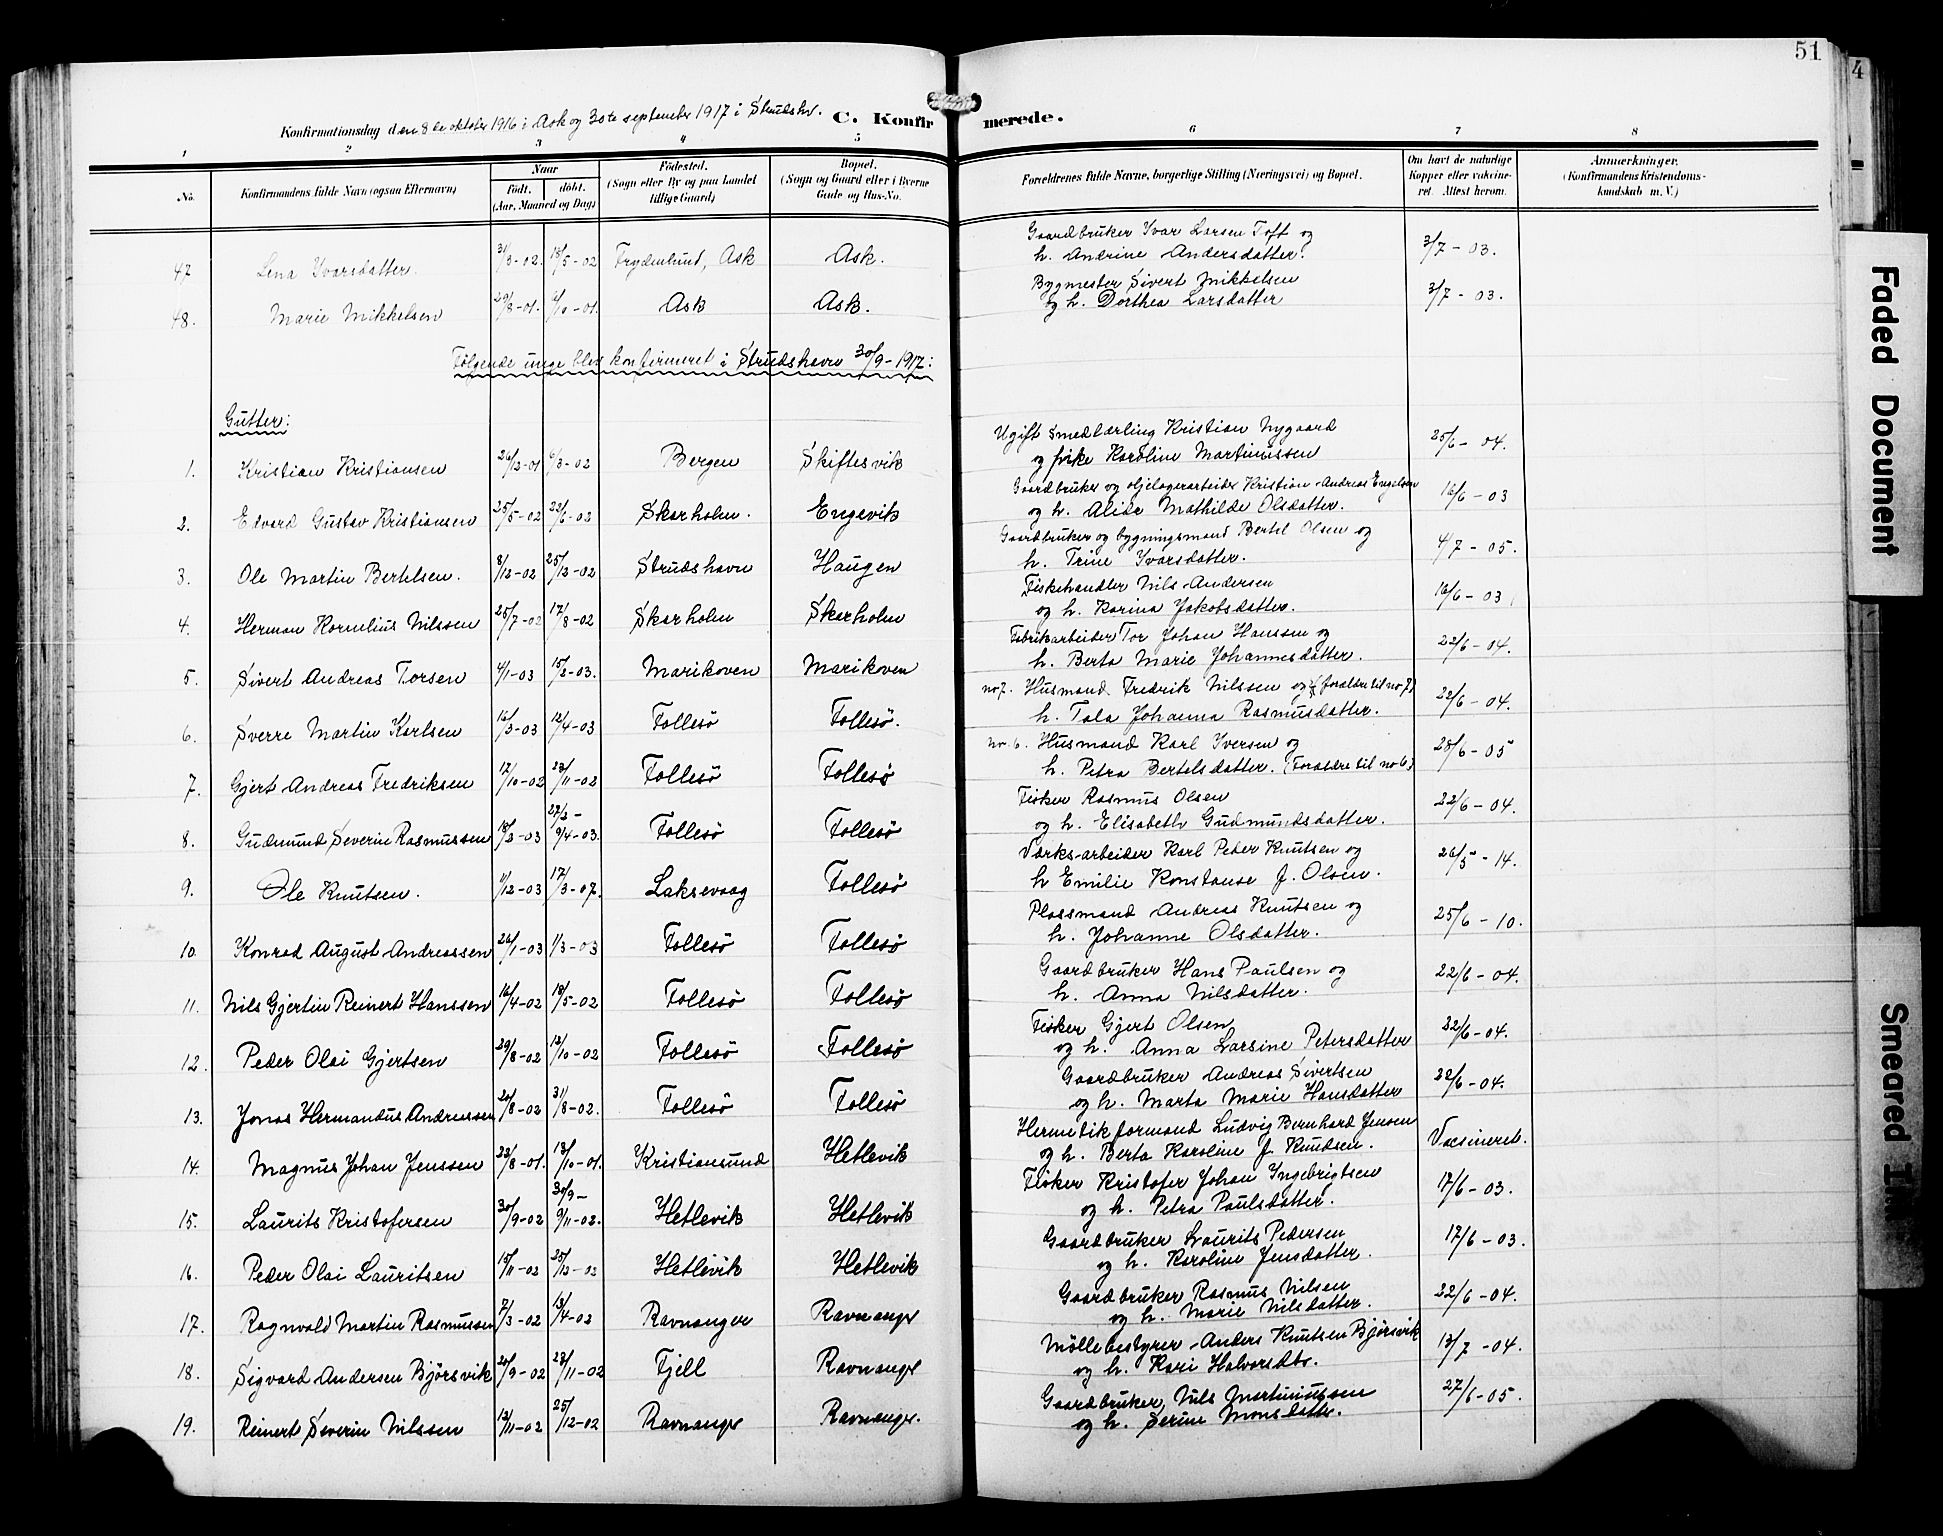 51
4
Konfirmationsdag den 8de oktober 1916 i Ask og 30te september 1917 i Strudshv. C. Konfirmerede.
1 2 3 4 5 6 7 8
No. Konfirmandens fulde Navn (ogsaa Efternavn) Naar Født. døbt. (Aar, Maaned og Dag) Fødested. (Sogn eller By og paa Landet tillige Gaard) Bopæl. (Sogn og Gaard eller i Byerne Gade og Hus-No. Forældrenes fulde Navne, borgerlige Stilling (Næringsvei) og Bopæl. Om havt de naturlige Kopper eller vakcineret. Attest herom. Anmærkninger. (Konfirmandens Kristendomskundskab m. V.)
47 Lena Ivarsdatter. 31/3-02. 18/5-02 Frydenlund, Ask Ask. Gaardbruker Ivar Larsen Toft og
h. Andrine Andersdatter. 3/7-03.
48. Marie Mikkelsen 29/8-01. 6/10-01. Ask Ask. Bygmester Sivert Mikkelsen
og h. Dorthea Larsdatter 3/7-03.
Følgende unge blev konfirmeret i Strudshavn 30/9-1917:
Gutter:
1. Kristian Kristiansen 26/12-01 6/3-02 Bergen Skiftesvik Ugift smedlærling Kristian Nygaard
og pike Karoline Martinussen 25/6-04.
2. Edvard Gustav Kristiansen 25/5-02 22/6-02 Skarholm. Engevik Gaardbruker og oljelagerarbeider Kristian Andreas Engelsen
og h. Alida Mathilde Olsdatter. 16/6-03
3. Ole Martin Bertelsen. 8/12-02 25/12-02 Strudshavn Haugen Gaardbruker og bygningsmand Bertel Olsen og
h. Trine Ivarsdatter. 4/7-05.
4. Herman Kornelius Nilssen 25/7-02 17/8-02 Skarholm Skarholm Fiskehandler Nils Andersen
og h. Karina Jakobsdatter. 16/6-03
5. Sivert Andreas Torsen 4/1-03 15/2-03. Marikoven Marikoven Fabrikarbeider Tor Johan Hanssen og
h. Berta Marie Johannesdatter. 22/6-04.
6. Sverre Martin Karlsen 16/3-03 12/4-03 Follesö Follesö. no 7. Husmand Fredrik Nilssen og (forældre til no 7)
h. Tala Johanna Rasmusdatter. 22/6-04.
7. Gjert Andreas Fredriksen 17/10-02 23/11-02 Follesö Follesö no. 6. Husmand Karl Iversen og
h. Petra Bertelsdatter. (Forældre til no 6) 28/6-05
8. Gudmund Severin Rasmussen 18/2-03 27/2-9/4-03. Follesö Follesö Fisker Rasmus Olsen
og h. Elisabeth Gudmundsdatter. 22/6-04.
9. Ole Knutsen. 11/12-03 17/3-07. Laksevaag Follesö Værksarbeider Karl Peder Knutsen og
h Emilie Konstanse f. Olsen. 26/5-14.
10. Konrad August Andreassen 26/1-03 1/3-03 Follesö Follesö Plassmand Andreas Knutsen og
h. Johanne Olsdatter. 25/6-10.
11. Nils Gjertin Reinert Hanssen 16/4-02 18/5-02 Follesö Follesö Gaardbruker Hans Paulsen og
h. Anna Nilsdatter. 22/6-04.
12. Peder Olai Gjertsen 29/8-02 12/10-02 Follesö Follesö Fisker Gjert Olsen
og h. Anna Larsine Petersdatter 22/6-04.
13. Jonas Hermandus Andreassen 20/8-02 31/8-02. Follesö Follesö Gaardbruker Andreas Sivertsen
og h. Marta Marie Hansdatter 22/6-04.
14. Magnus Johan Jenssen 22/8-01. 13/10-01. Kristiansund Hetlevik Hermetikformand Ludvig Bernhard Jensen
og h. Berta Karoline f. Knudsen. Vacsineret.
15. Laurits Kristofersen 30/9-02 30/9-9/11-02. Hetlevik Hetlevik Fisker Kristofer Johan Ingebrigtsen
og h. Petra Paulsdatter. 17/6-03.
16. Peder Olai Lauritsen 15/11-02 25/12-02 Hetlevik Hetlevik Gaardbruker Laurits Pedersen
og h. Karoline Jensdatter. 17/6-03.
17. Ragnvald Martin Rasmussen 7/3-02 13/4-02 Ravnanger Ravnanger Gaardbruker Rasmus Nilsen
og h. Marie Nilsdatter. 22/6-04.
18. Sigvard Andersen Bjørsvik 20/9-02 23/11-02 Fjell Ravnanger Møllebestyrer Anders Knutsen Bjørsvik
og h. Kari Halvorsdtr. 13/7-04.
19. Reinert Severin Nilssen 12/11-02 25/12-02 Ravnanger Ravnanger. Gaardbruker Nils Martinussen
og h. Serine Monsdatter. 27/6-05.
Faded Document
Smeared Ink